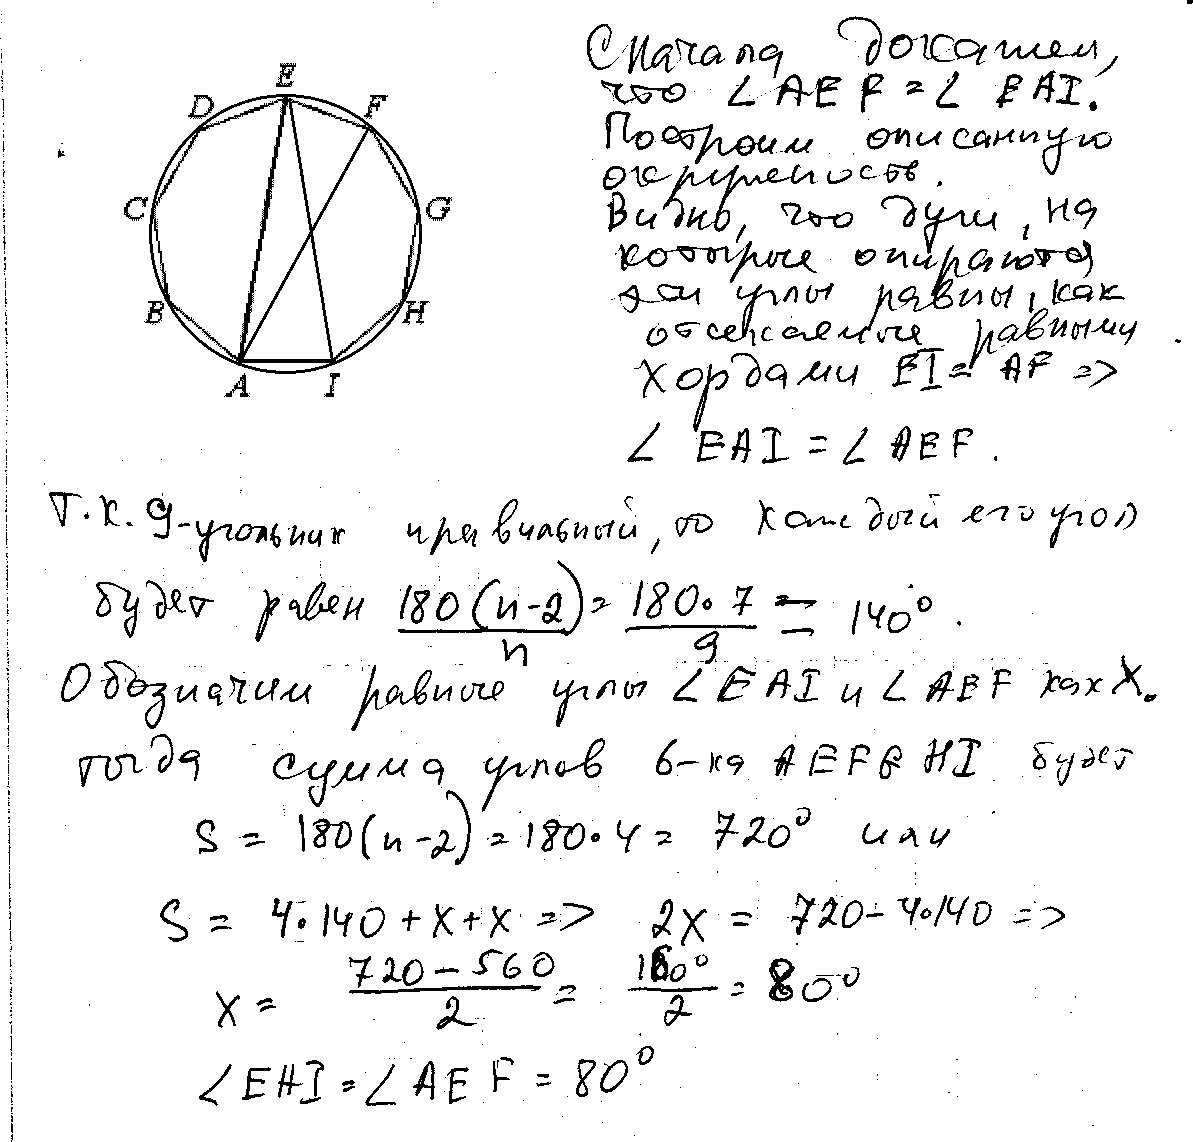 E
D F
C G
B H
A I
Сначала докажем,
что ∠ AEF = ∠ EAI.
Построим описанную
окружность.
Видно, что дуги, на
которые опираются
эти углы равны, как
отсекаемые равными
хордами EI = AF =>
∠ EAI = ∠ AEF.
Т.к. 9-угольник правильный, то каждый его угол
будет равен 180(n-2)/n = 180·7/9 = 140°.
Обозначим равные углы ∠EAI и ∠AEF как X.
тогда сумма углов 6-ка AEFGHI будет
S = 180(n-2) = 180·4 = 720° или
S = 4·140 + x + x => 2x = 720-4·140 =>
x = 720-560/2 = 160°/2 = 80°
∠EHI = ∠AEF = 80°